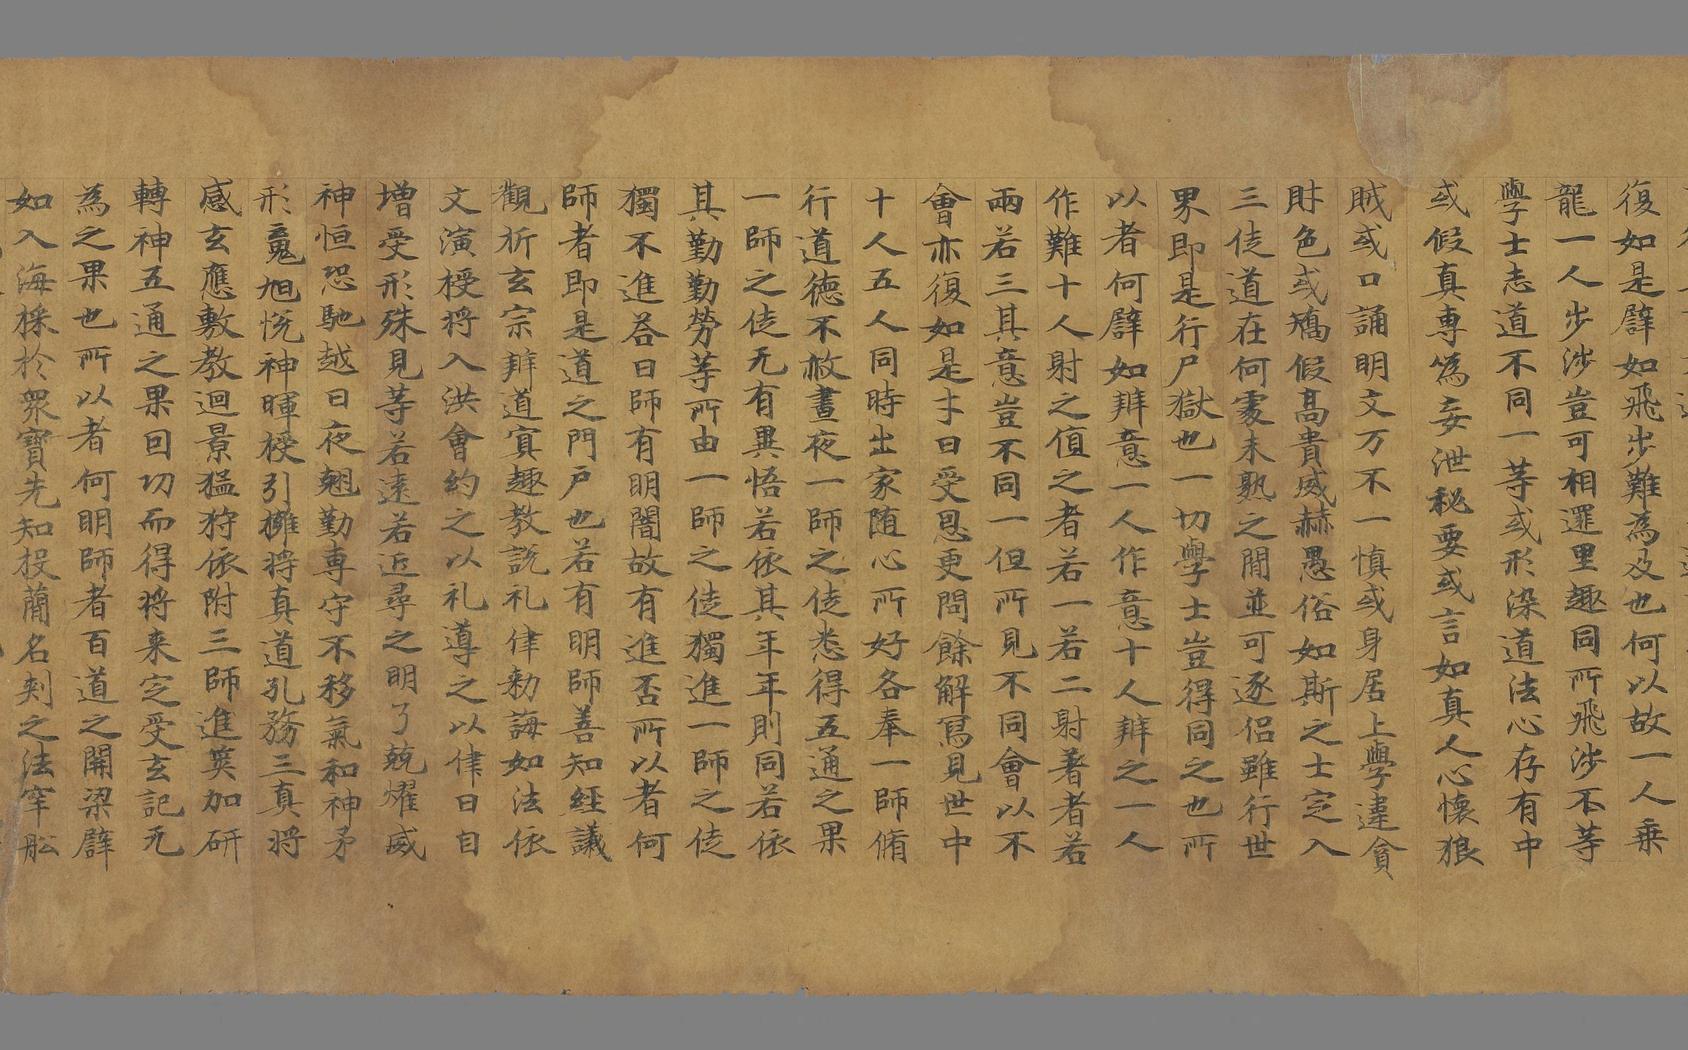 復如是譬如飛步難為及也何以故一人乗
龍一人步涉豈可相邏里趣同所飛涉不等
學士志道不同一等或形染道法心存有中
或假真專為妄泄秘要或言如真人心懷狼
賊或口誦明文万不一慎或身居上學違貪
財色或矯假髙貴威赫愚俗如斯之士定入
三徒道在何處未熟之間並可逐侣雖行世
界即是行尸獄也一切學士豈得同之也所
以者何譬如辯意一人作意十人辯之一人
作難十人射之值之者若一若二射著者若
兩若三其意豈不同一但所見不同會以不
會亦復如是才曰受恩更問餘解寫見世中
十人五人同時出家随心所好各奉一師脩
行道徳不赦晝夜一師之徒悉得五通之果
一師之徒无有異悟若依其年年則同若依
其勤勤勞等所由一師之徒獨進一師之徒
獨不進荅曰師有明闇故有進否所以者何
師者即是道之門户也若有明師善知經議
觀析玄宗辯道寘趣教説礼律勑誨如法依
文演授将入洪會約之以礼導之以律日自
增受形殊見等若遠若近尋之明了兢燿威
神恒恐馳越日夜翹勤專守不移氣和神矛
形嵬旭悦神暉授引擁将真道孔務三真将
感玄應敷教迴景猛狩依附三師進英加研
轉神五通之果回功而得将来定受玄記无
為之果也所以者何明師者百道之開梁譬
如入海採於衆寶先知投蕳名剡之法窂舩